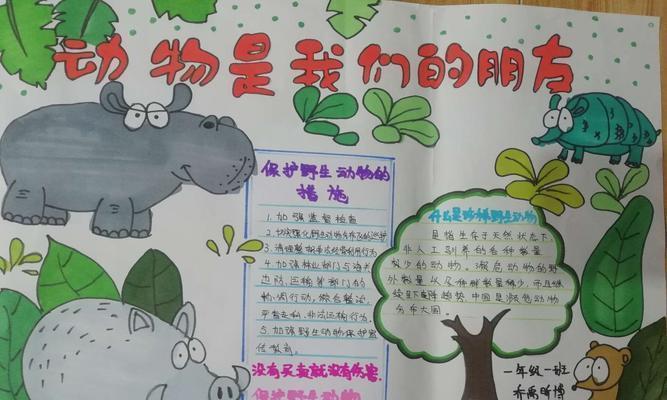 动物是我们的朋友
保护野生动物的
措施
1.加强监督检查
3.清理整顿非法经营利用行为
4.加强林业部门与海关
边防、运输等部门的
协调行动,综合整治,
非法运输行为.
5.加强野生动物保护宣
传教育.
没有买卖就没有伤害.
保护野生动物
什么是珍稀野生动物
是指生存于天然状态下,
非人工驯养的各种数量
较少的动物。濒危动物的野
外数量以及种群数量稀少,而且继
续呈下降趋势,中国是濒危动物
分布大国.
一年级一班